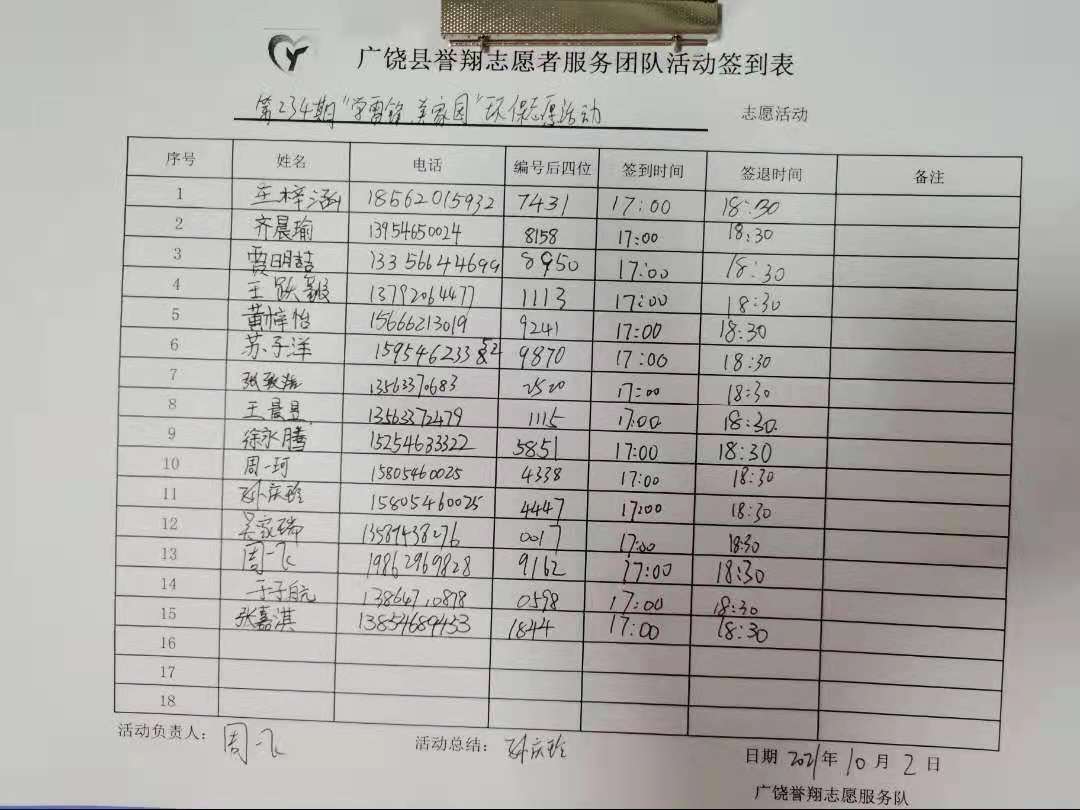 广饶县誉翔志愿者服务团队活动签到表
第234期"学雷锋 美家园"环保志愿活动 志愿活动
序号 姓名 电话 编号后四位 签到时间 签退时间 备注
1 王梓涵 18562015932 7431 17:00 18:30
2 齐晨瑜 13954650024 8158 17:00 18:30
3 13356644699 8950 17:00 18:30
4 王 13792064477 1113 17:00 18:30
5 黄梓怡 15666213019 9241 17:00 18:30
6 苏子洋 15954623352 9870 17:00 18:30
7 张 13563370683 2520 17:00 18:30
8 王晨昱 13563372479 1115 17:00 18:30
9 徐永腾 15254633322 5851 17:00 18:30
10 周一珂 15805460025 4338 17:00 18:30
11 孙庆玲 15805460025 4447 17:00 18:30
12 吴家瑞 13589438276 0017 17:00 18:30
13 周一飞 19862969828 9162 17:00 18:30
14 于子航 0598 17:00 18:30
15 张嘉淇 13854689453 1844 17:00 18:30
16
17
18
活动负责人： 周一飞 活动总结： 孙庆玲 日期 2021年10月2日
广饶誉翔志愿服务队